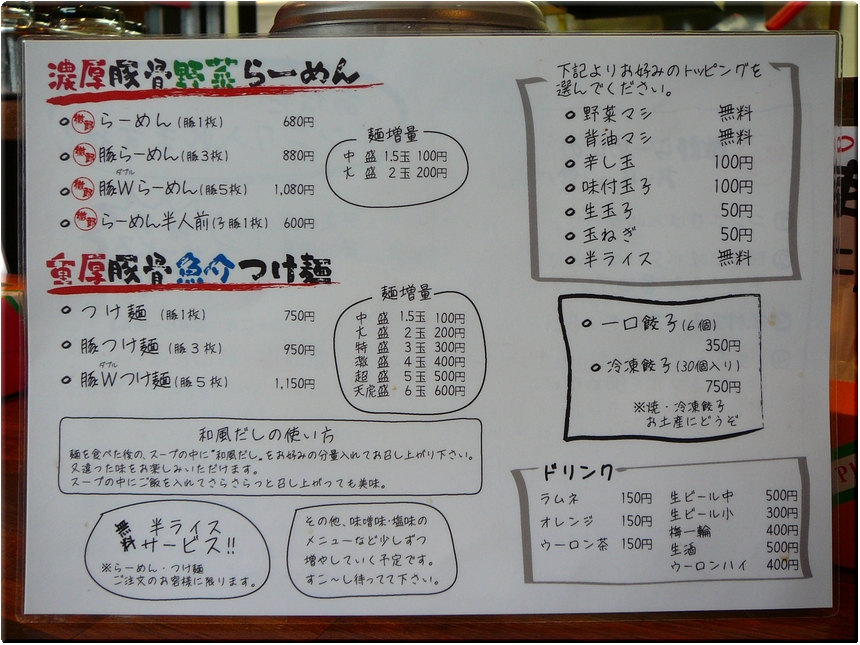 濃厚豚骨野菜らーめん
らーめん(豚1枚) 680円
豚らーめん(豚3枚) 880円
ダブル
豚Wらーめん(豚5枚) 1,080円
らーめん半人前(子豚1枚) 600円
麺増量
中盛 1.5玉 100円
大盛 2玉 200円
濃厚豚骨魚介つけ麺
つけ麺(豚1枚) 750円
豚つけ麺(豚3枚) 950円
ダブル
豚Wつけ麺(豚5枚) 1,150円
麺増量
中盛 1.5玉 100円
大盛 2玉 200円
特盛 3玉 300円
激盛 4玉 400円
超盛 5玉 500円
天虎盛 6玉 600円
和風だしの使い方
麺を食べた後の、スープの中に"和風だし"をお好みの分量入れてお召し上がり下さい。
又違った味をお楽しみいただけます。
スープの中にご飯を入れてさらさらっと召し上がっても美味。
無料 半ライス
サービス!!
※らーめん・つけ麺
ご注文のお客様に限ります。
その他、味噌味・塩味の
メニューなど少しずつ
増やしていく予定です。
すこ〜し待ってて下さい。
下記よりお好みのトッピングを
選んでください。
野菜マシ 無料
背油マシ 無料
辛し玉 100円
味付玉子 100円
生玉子 50円
玉ねぎ 50円
半ライス 無料
一口餃子(6個)
350円
冷凍餃子(30個入り)
750円
※焼・冷凍餃子
お土産にどうぞ
ドリンク
ラムネ 150円
オレンジ 150円
ウーロン茶 150円
生ビール中 500円
生ビール小 300円
梅一輪 400円
生酒 500円
ウーロンハイ 400円